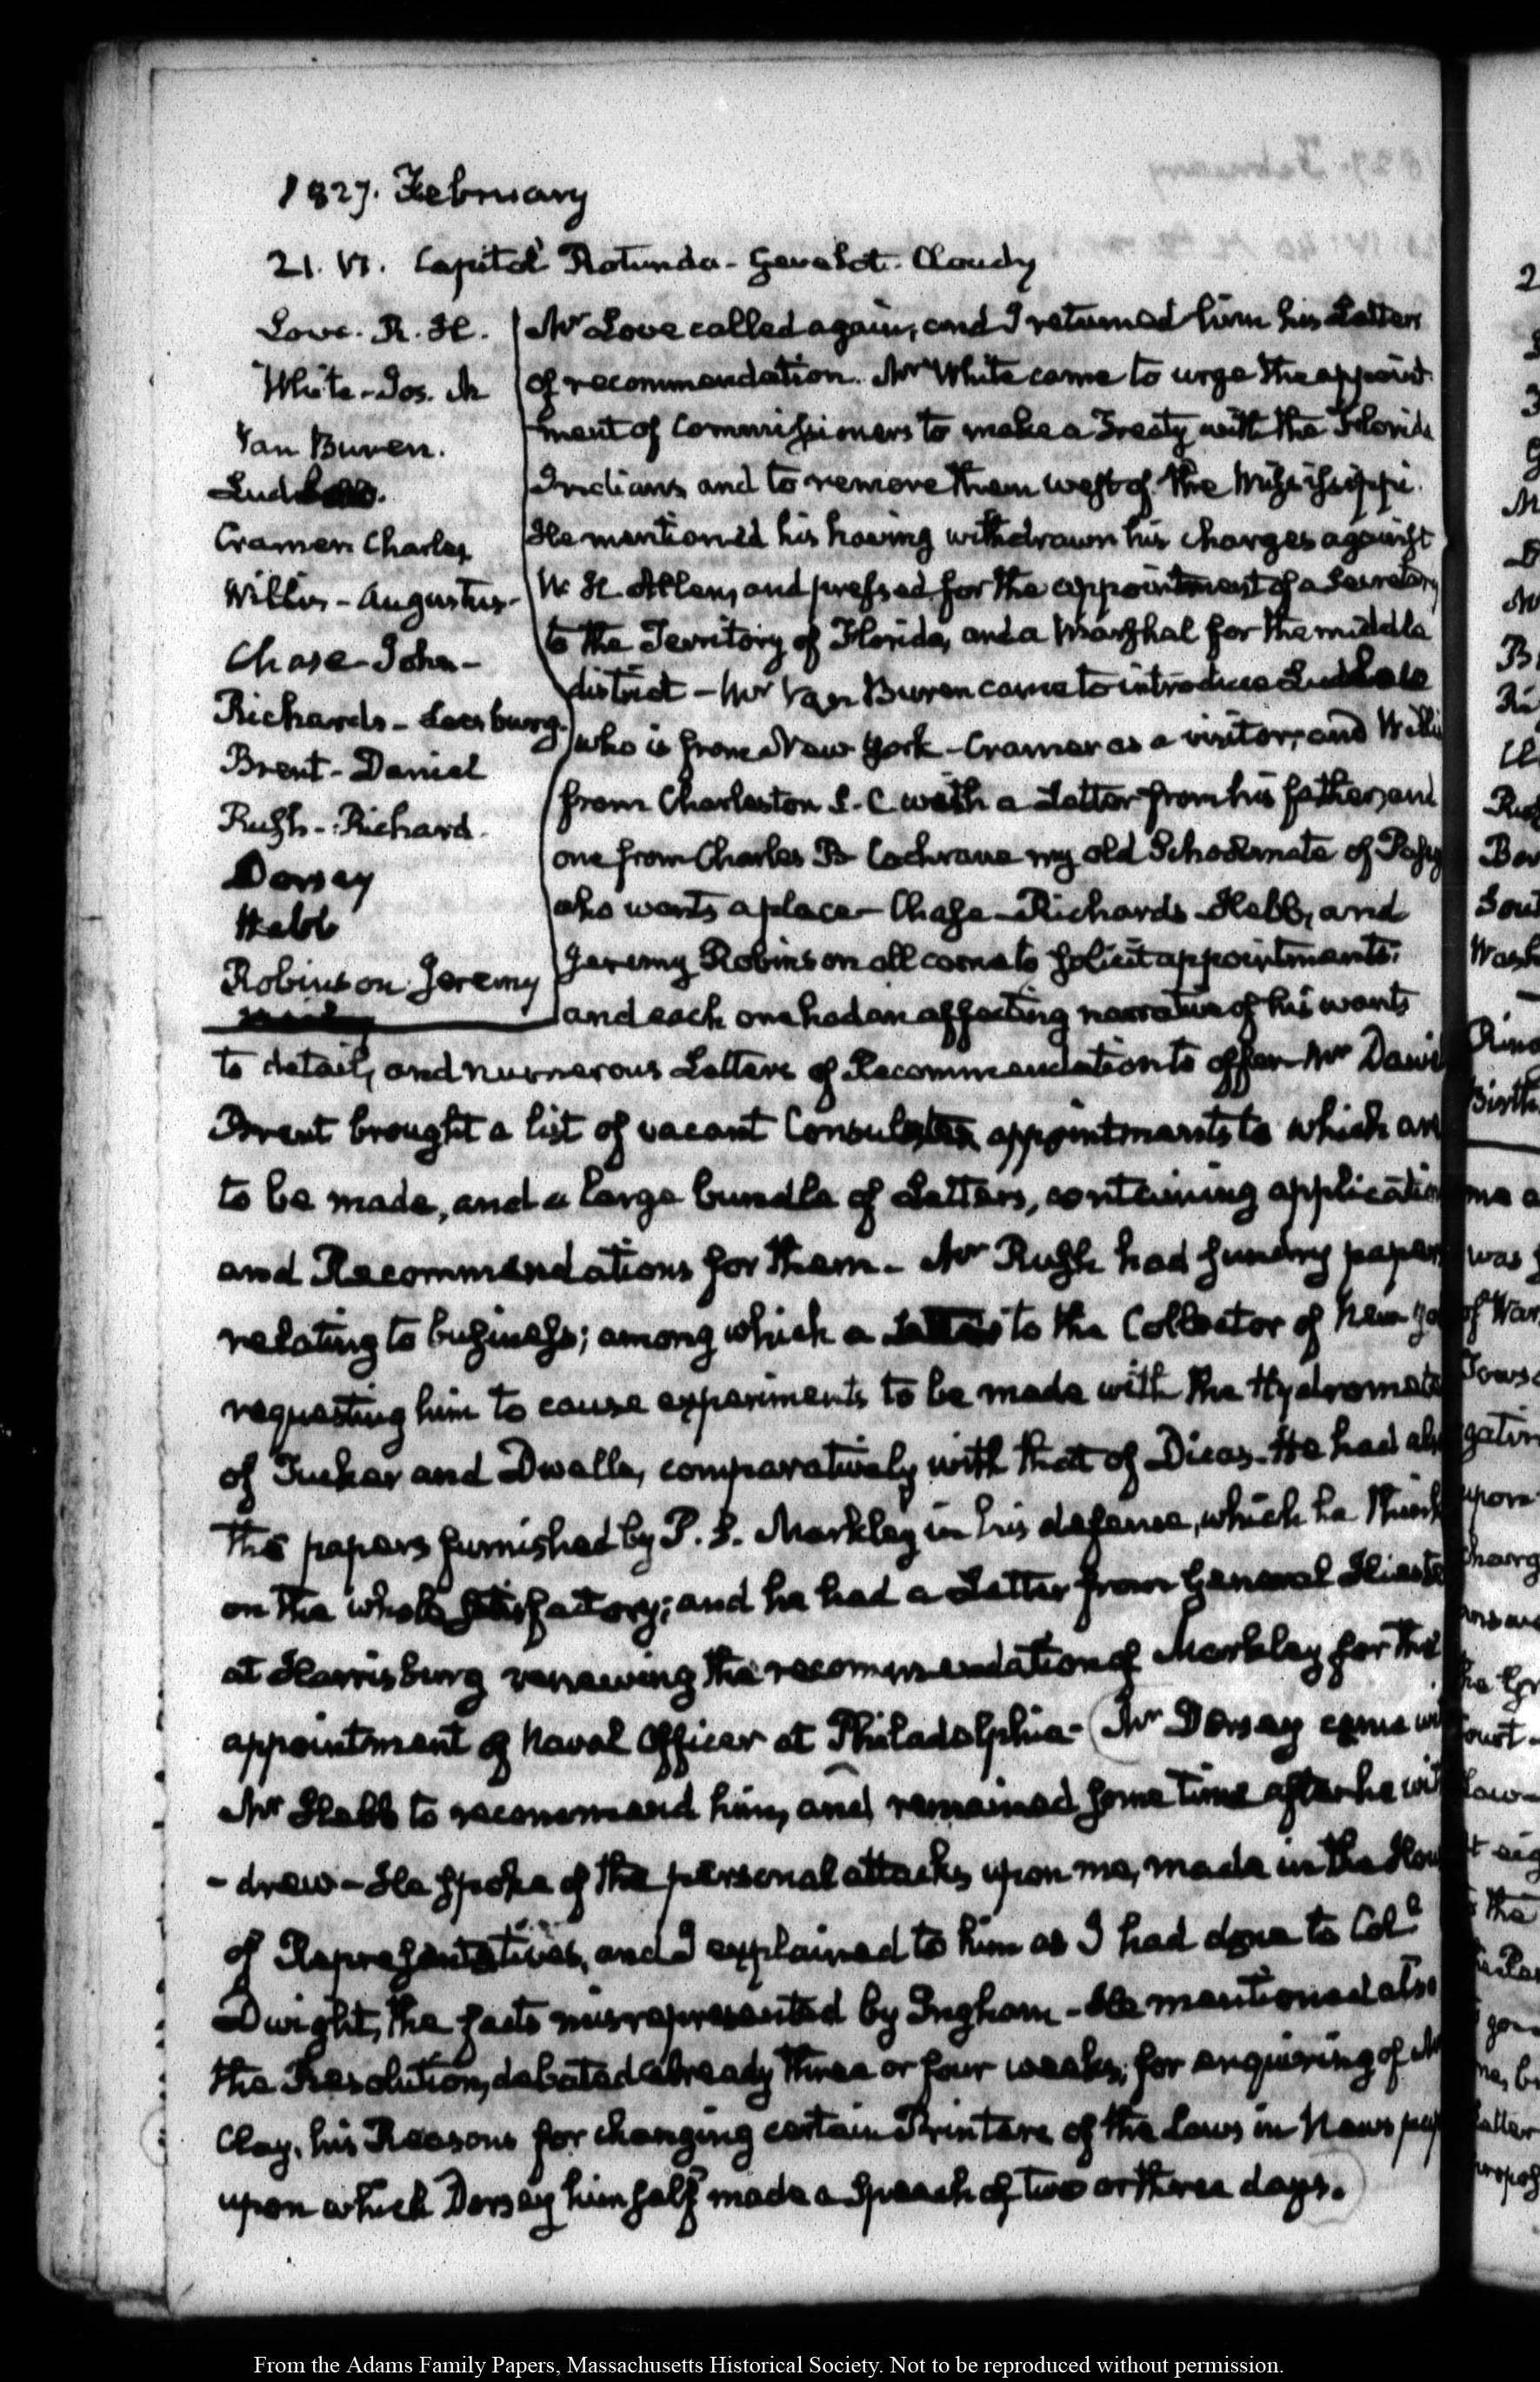 1827. February
21. VI. Capitol Rotunda - Gevelot. Cloudy
Love. R. H.
White - Jos. M
Van Buren.
Cramer Charles
Willis - Augustus -
Chase - John -
Richards - Leesburg.
Brent - Daniel
Rush - Richard.
Dorsey
Hebb
Robinson Jeremy
Mr Love called again, and I returned him his Letters
of recommendation. Mr White came to urge the appoint
ment of Commissioners to make a Treaty with the Florida
Indians and to remove them west of the Mississippi.
He mentioned his having withdrawn his charges against
W. H. Allen, and pressed for the appointment of a Secretary
to the Territory of Florida, and a Marshal for the middle
district - Mr Van Buren came to introduce
who is from New York - Cramer as a visitor, and Willis
from Charleston S. C with a Letter from his father, and
one from Charles B Cochrane my old Schoolmate of Passy
who wants a place - Chase - Richards - Hebb, and
Jeremy Robinson all come to solicit appointments.
and each one had an affecting narrative of his wants
to detail, and numerous Letters of Recommendation to offer - Mr Daniel
Brent brought a list of vacant appointments to which are
to be made, and a large bundle of Letters, containing applicatio
and Recommendations for them - Mr Rush had sundry papers
relating to business; among which a Letter to the Collector of New Yo
requesting him to cause experiments to be made with the Hydromete
of Tucker and Dwelle, comparatively with that of Dicas - He had also
the papers furnished by P. S. Markley in his defence, which he think
on the whole satisfactory; and he had a Letter from General Hieste
at Harrisburg renewing the recommendation of Markley for the
appointment of Naval Officer at Philadelphia - Mr Dorsey came wi
Mr Hebb to recommend him, and remained some time after he wit
- drew - He spoke of the personal attacks upon me, made in the Hou
of Representatives, and I explained to him as I had done to Coll
Dwight, the facts misrepresented by Ingham - He mentioned also
the Resolution, debated already three or four weeks, for enquiring of M
Clay, his Reasons for changing certain Printers of the Laws in Newspap
upon which Dorsey himself made a Speech of two or three days.
From the Adams Family Papers, Massachusetts Historical Society. Not to be reproduced without permission.